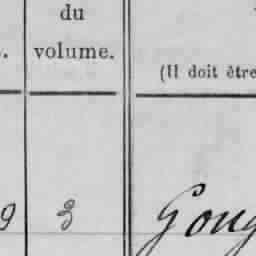 du
volume.
(Il doit être
9 3 Goug